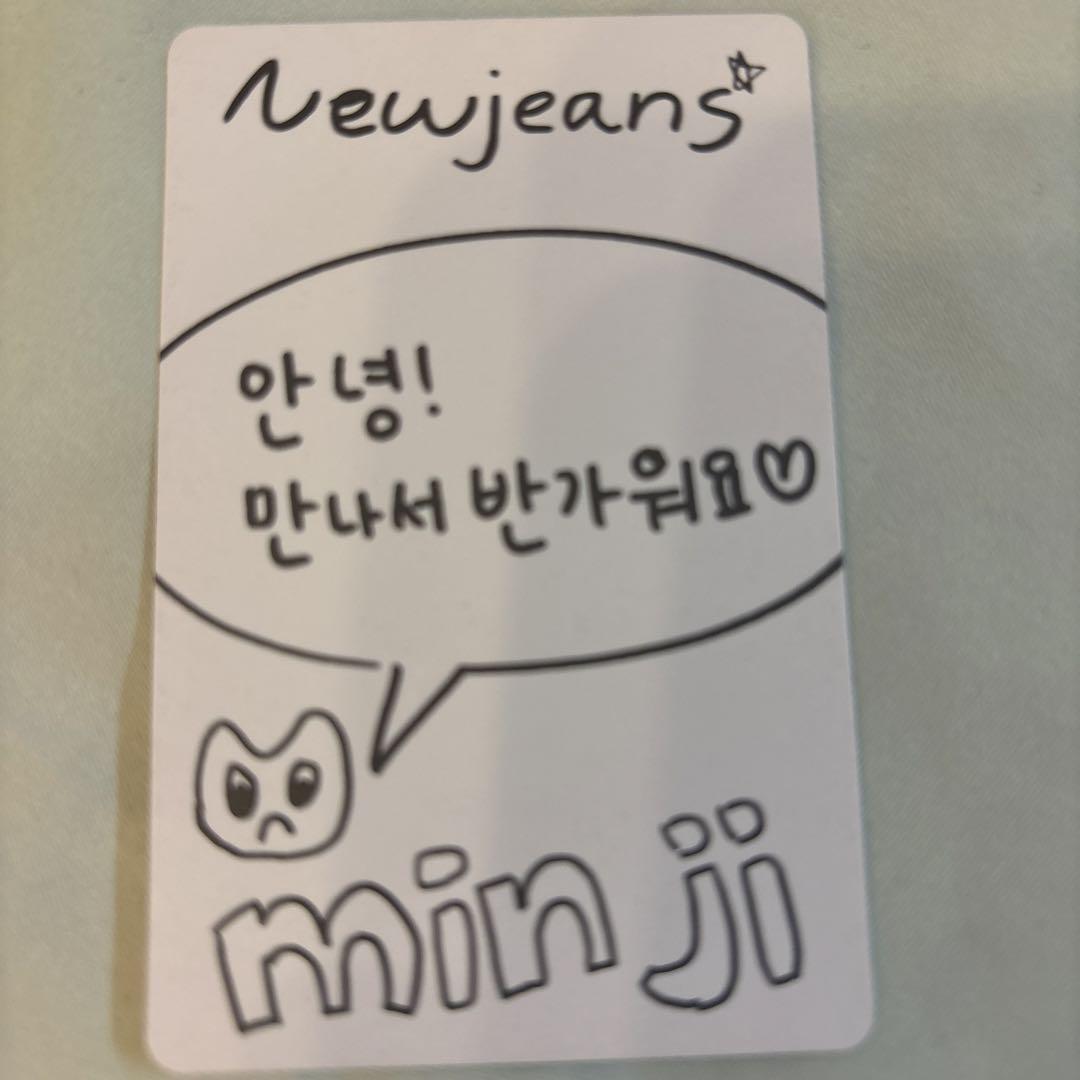 Newjeans☆
안녕!
만나서 반가워요♡
minji